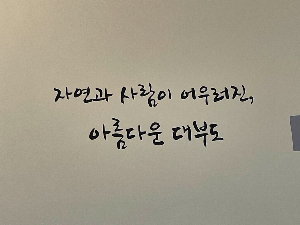 자연과 사람이 어우러진,
아름다운 대부도